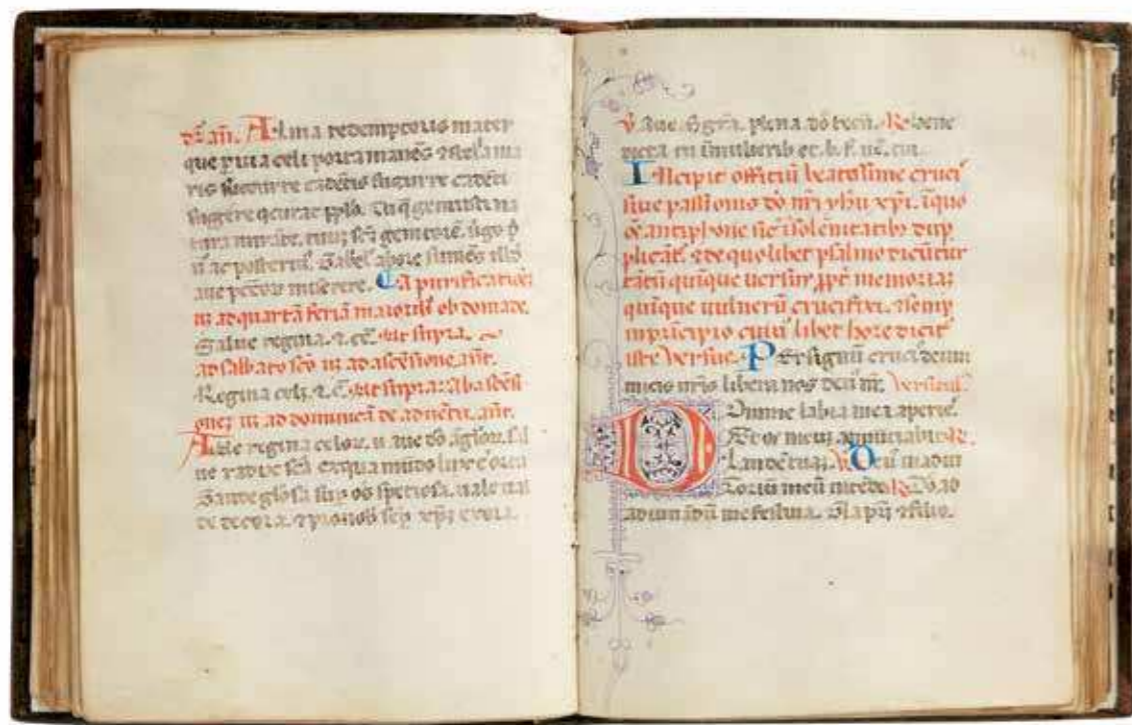 dr̄ an̄. Alma redemptoris mater
que ꝑuia celi porta manes ⁊ stella ma
ris succurre cadētis surgere cadēti
surgere qͥ curat ppl̄o. Tu q̄ genuisti na
tura mirāte. tuuȝ sc̄m genitorē. ũgo p̄
ac posteriꝰ. Gabͥelꝰ ab ore sumēs illd̄
aue peccatoꝝ miserere. A purificatiōe
ad quartā feriā maioris ebdomade.
Salue regina. ⁊ cet̄. ut supra.
ad sabbato sc̄o ad ascēsionē. an̄t.
Regina celi. ⁊ c̄. ut supra. ab ascēsi
oneȝ ad dominicā de aduētu. an̄t.
Aue regina celoꝝ. aue dn̄a āgeloꝝ. sal
ue radix sc̄a ex qua mūdo lux ē orta
Gaude gl̄osa suꝑ oēs spetiosa. uale ual
de decora. ⁊ pro nob̄ semꝑ xp̄m exora.
V̄. Aue. Gr̄a. plena dn̄s tecū. R. bene
dicta tu ī mulierib et. b. f. uē. tui.
Incipit officiū beatissime cruci
siue passionis dn̄i nr̄i yhū xp̄i. ī quo
oēs antiphone sic ī solēnitatib dup
plicāt̄. ⁊ de quolibet psalmo dicūtur
tātū quinque uersus ꝓpt̄ memoriaȝ
quinque uulnerū crucifixi. ⁊ semꝑ
in prīcipio cuiuslibet hore dicit̄
iste uersus. Per signū crucis de inī
micis nr̄is libera nos deus nr̄. Versicul
Domine labia mea aperies.
Et os meuȝ annūciabit R.
laudē tuaȝ. V. Deus in adiu
toriū meū intēde R. Dn̄e ad
adiuuādū me festina. Gl̄a pr̄i ⁊ filio.